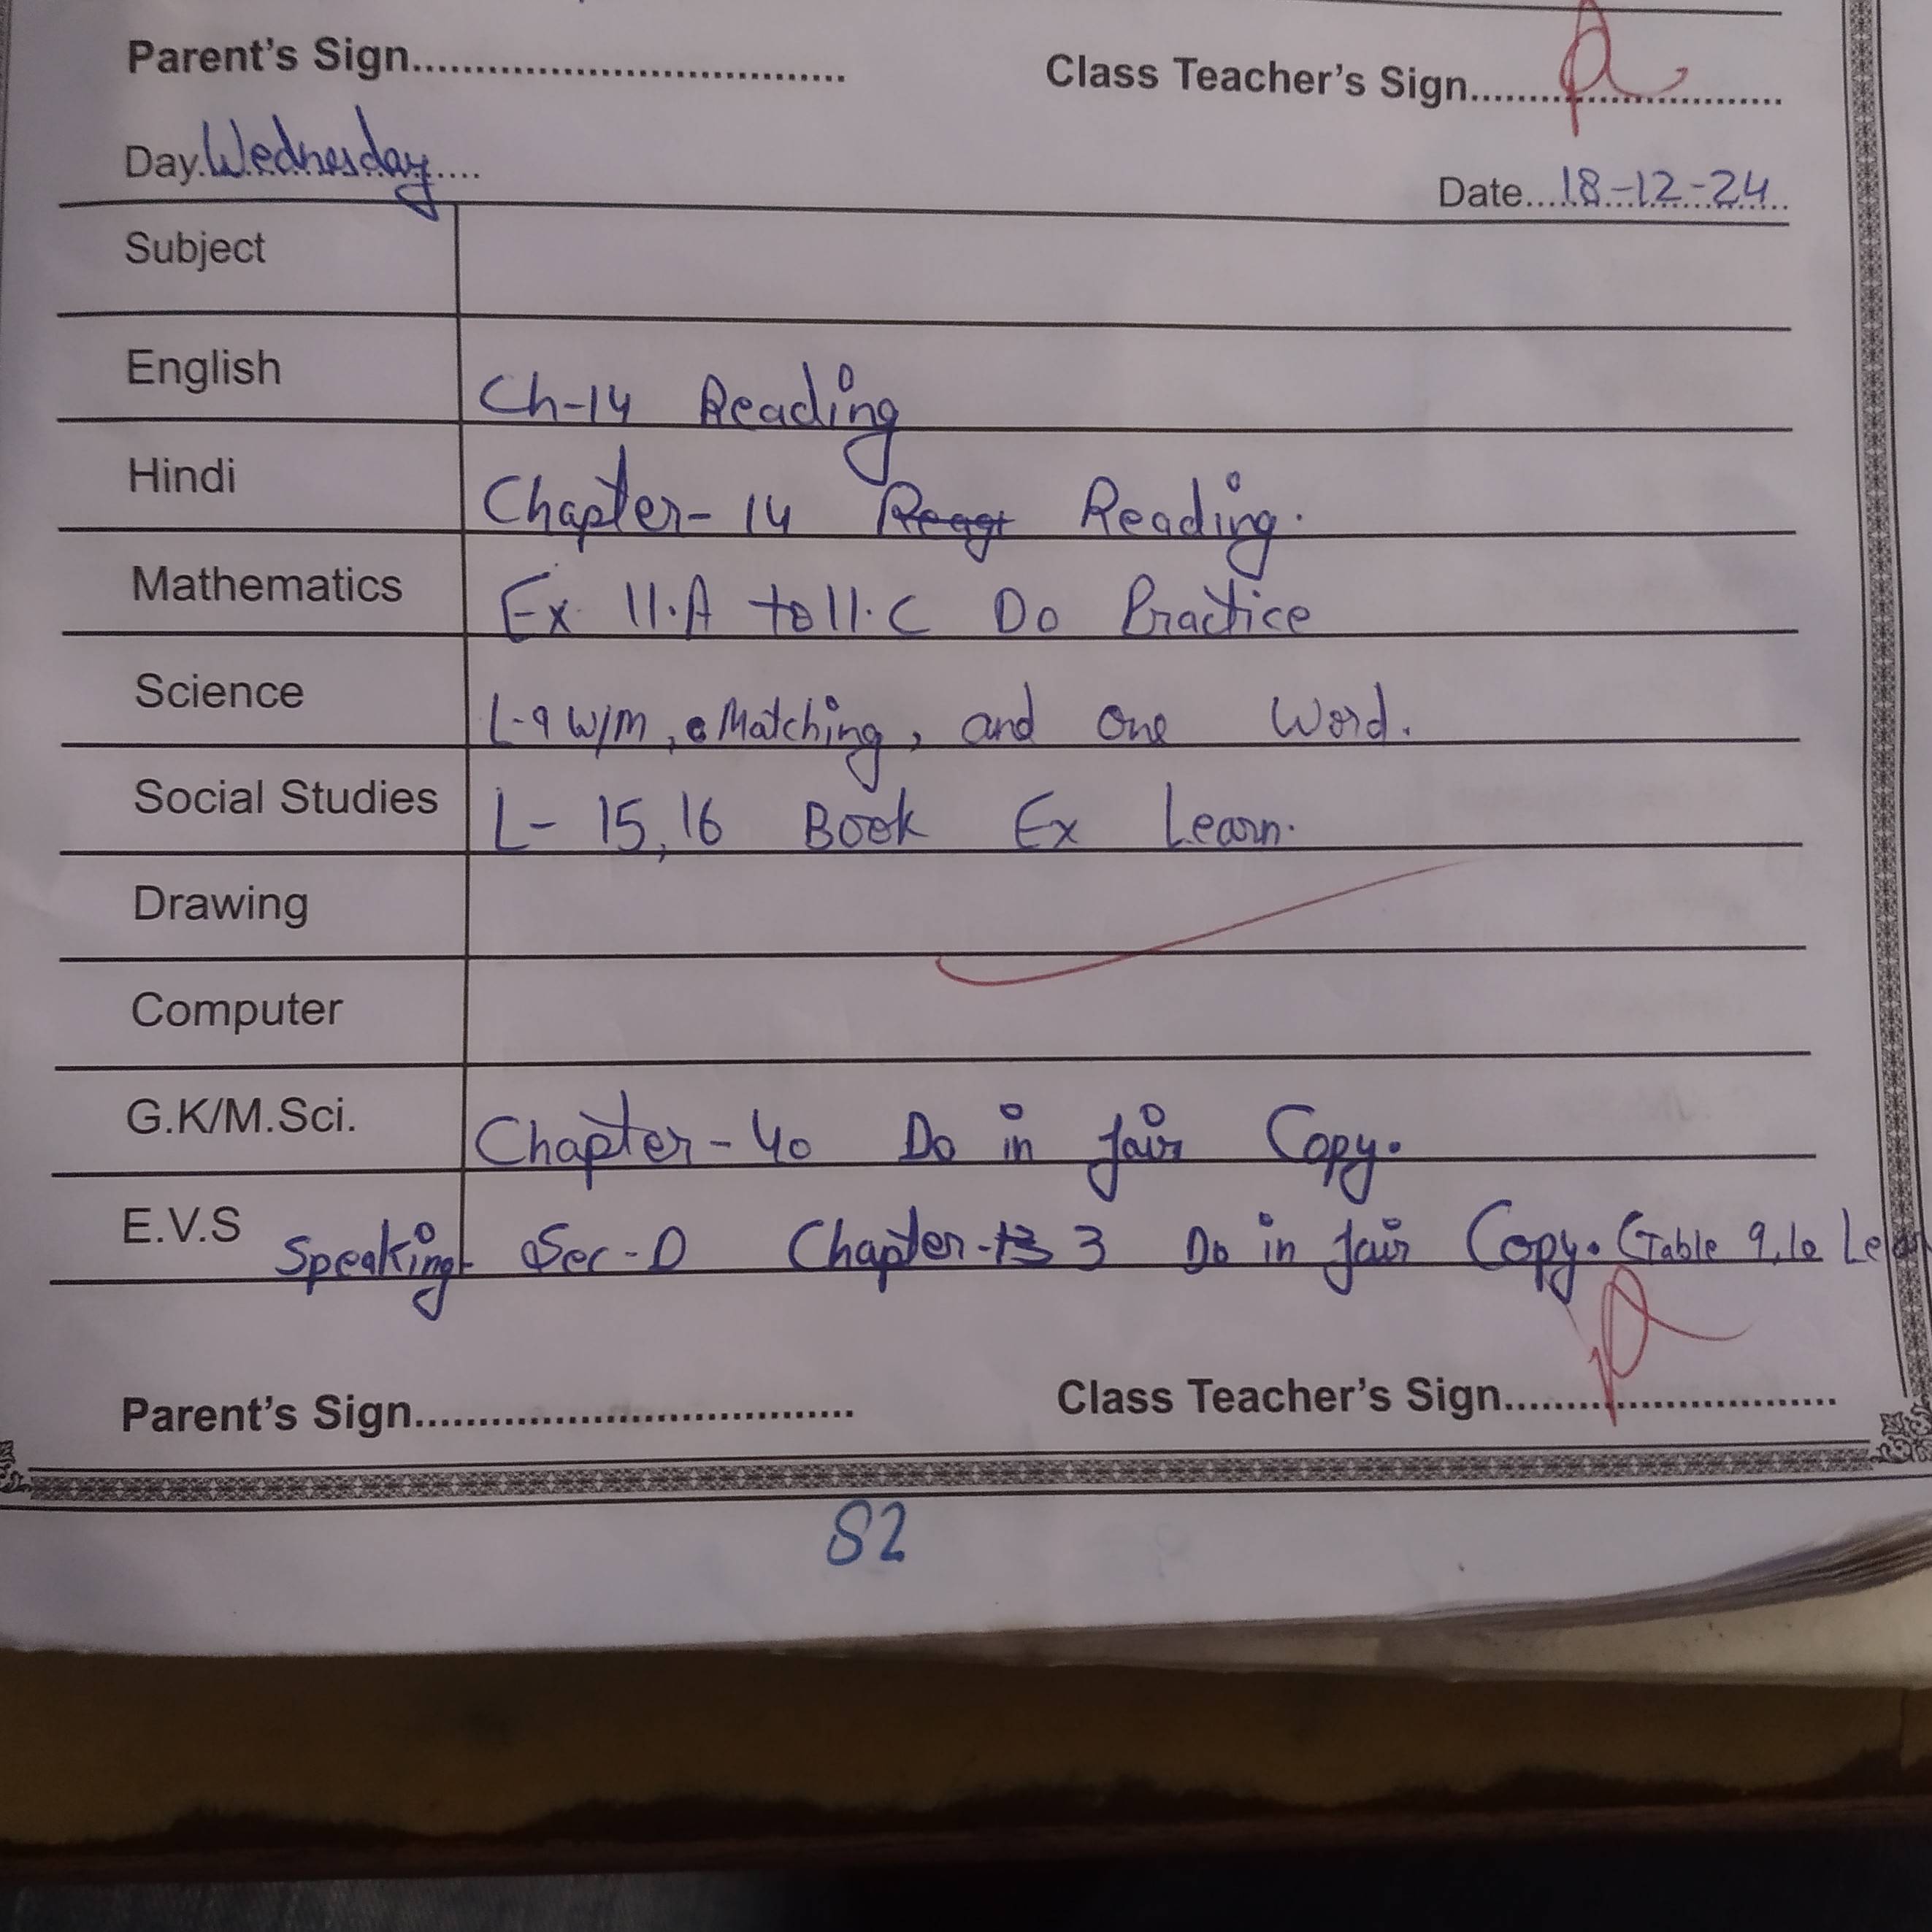 Parent's Sign.................................... Class Teacher's Sign..........................
Day Wednesday.... Date...18-12-24
Subject
English Ch-14 Reading
Hindi Chapter- 14 Reading.
Mathematics Ex 11.A to 11.C Do Practice
Science L-9 W/M, Matching, and One Word.
Social Studies L- 15,16 Book Ex Learn.
Drawing
Computer
G.K/M.Sci. Chapter-40 Do in fair Copy.
E.V.S Speaking Sec-D Chapter- 3 Do in fair Copy. (Table 9,10
Parent's Sign.................................... Class Teacher's Sign..........................
82